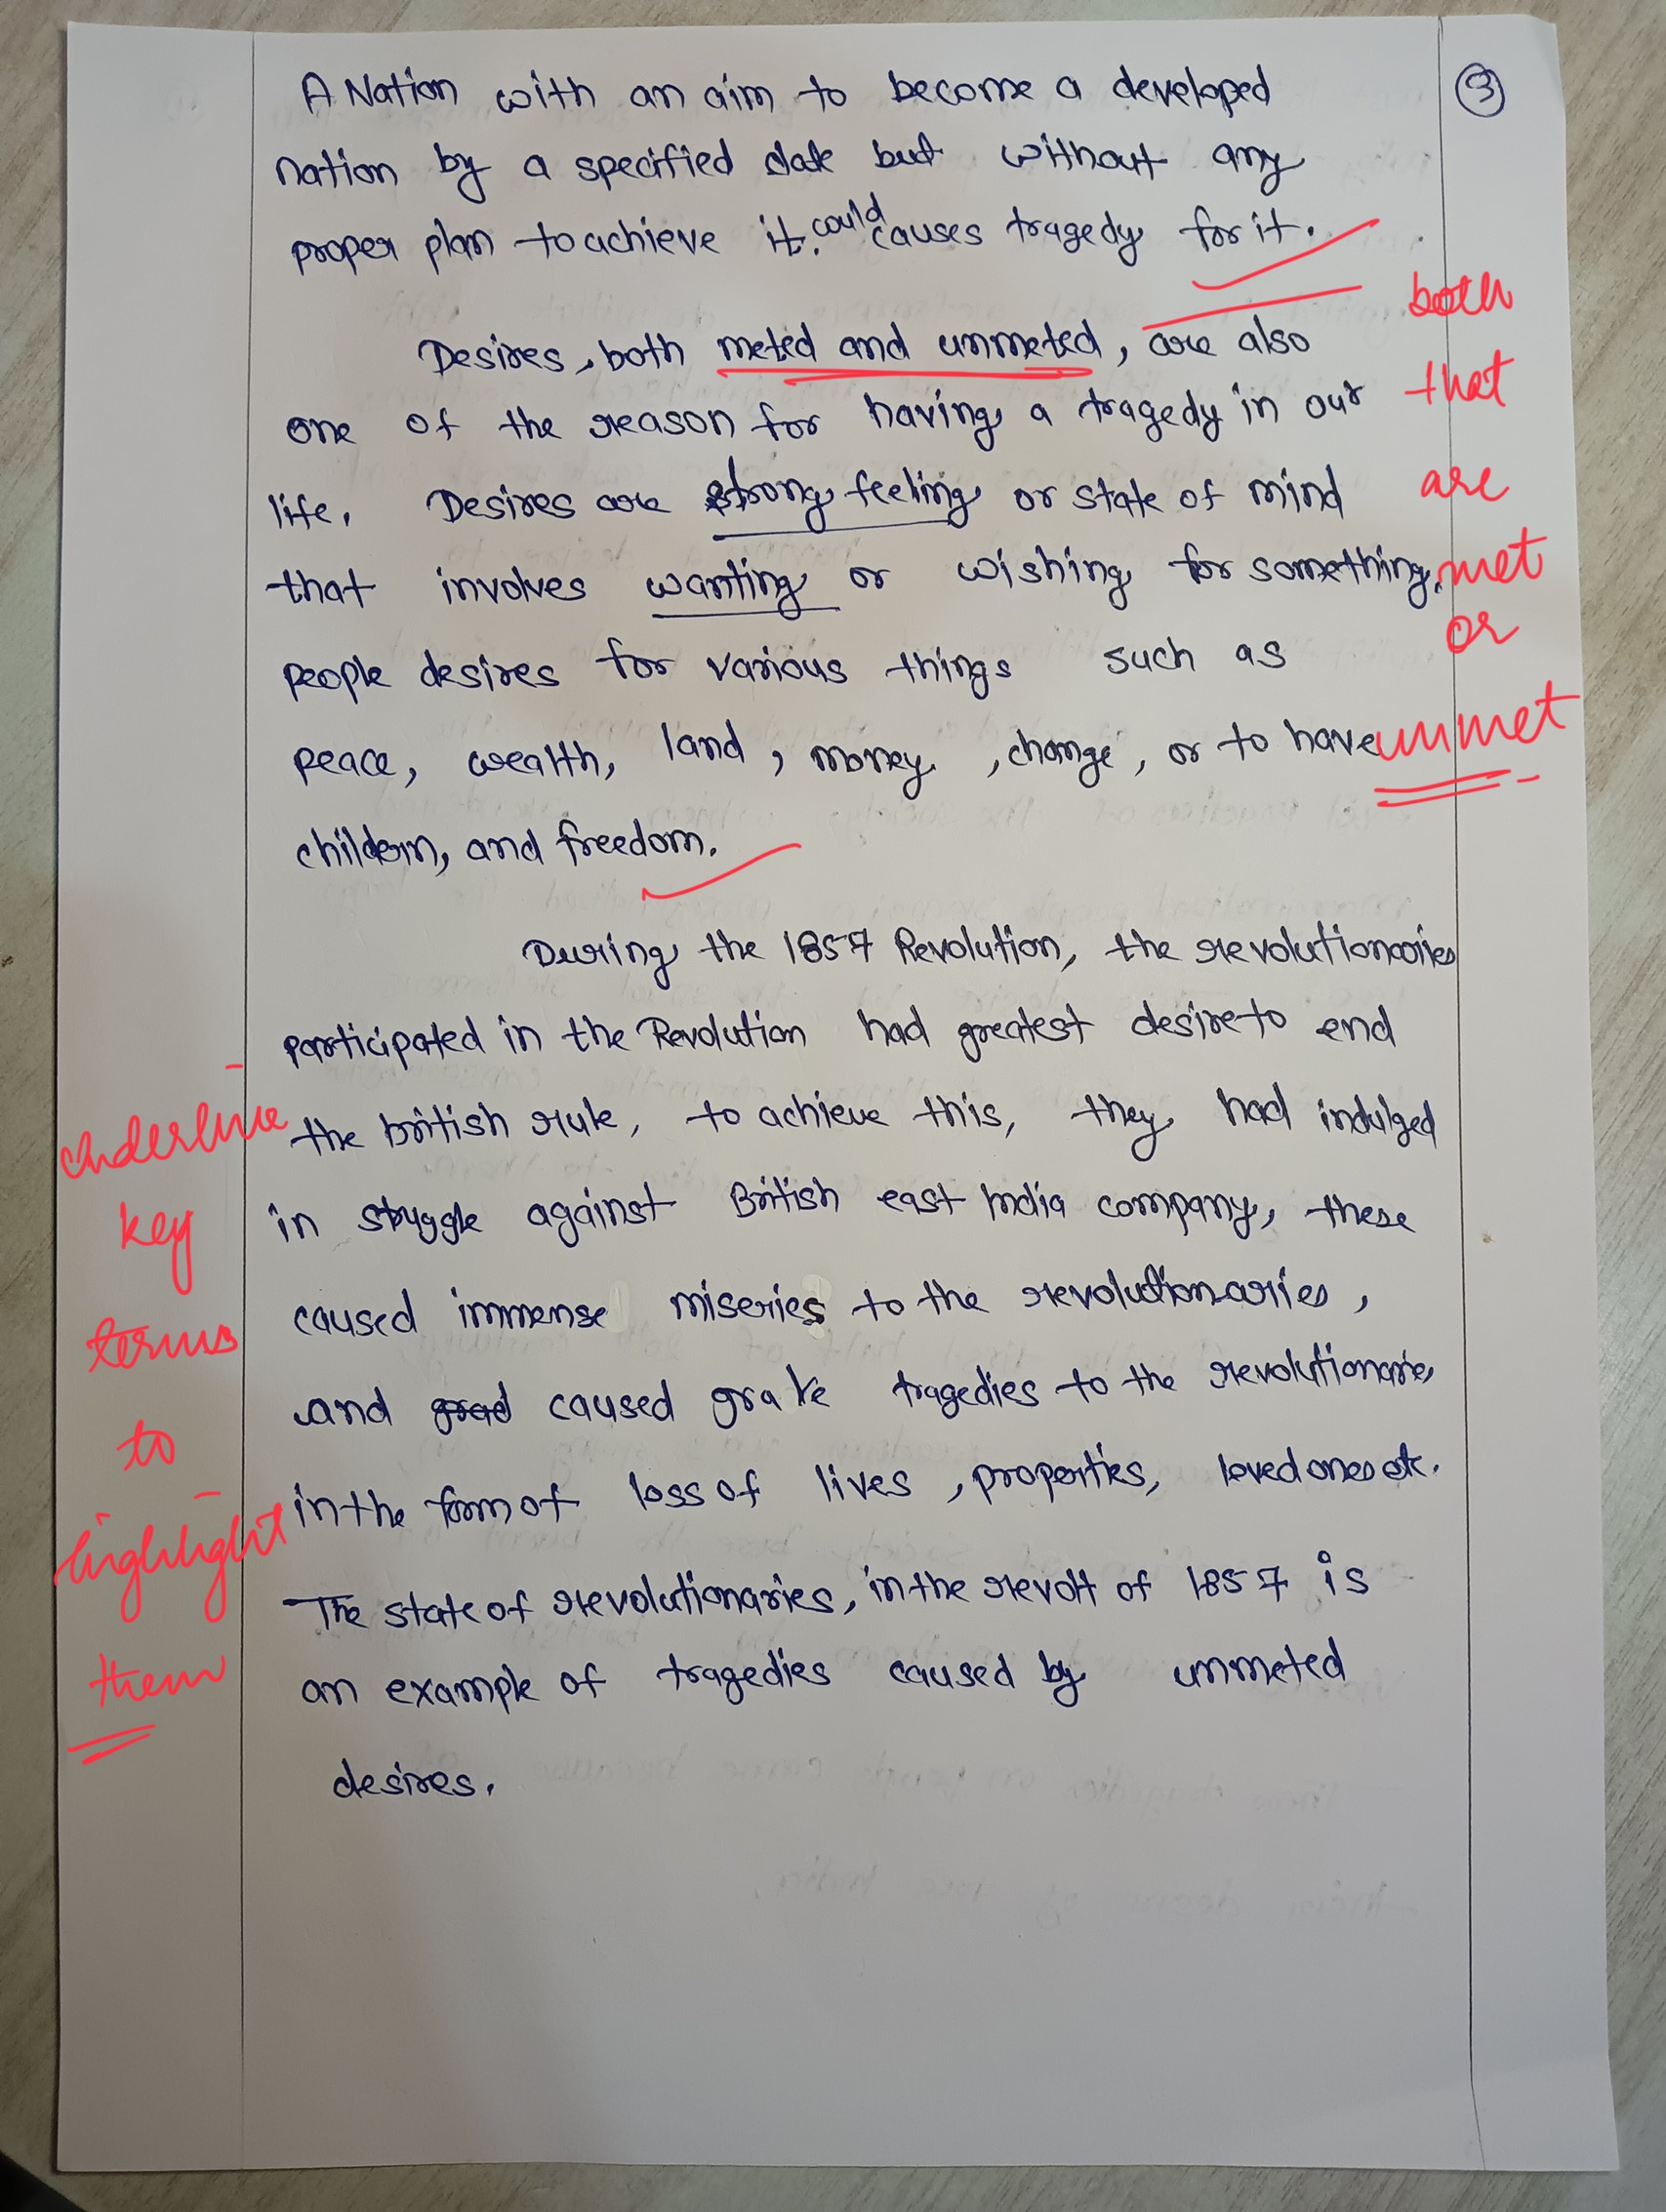 3
A Nation with an aim to become a developed
nation by a specified date but without any
proper plan to achieve it. could causes tragedy for it.
Desires, both meted and unmeted, are also
one of the reason for having a tragedy in our
life. Desires are strong feeling or state of mind
that involves wanting or wishing for something,
people desires for various things such as
peace, wealth, land, money, change, or to have
childern, and freedom.
both
that
are
met
or
unmet
During the 1857 Revolution, the revolutionaries
participated in the Revolution had greatest desire to end
the british rule, to achieve this, they had indulged
in struggle against British east India company, these
caused immense miseries to the revolutionaries,
and caused grave tragedies to the revolutionaries
in the form of loss of lives, properties, loved ones etc.
The state of revolutionaries, in the revolt of 1857 is
an example of tragedies caused by unmeted
desires.
underline
key
terms
to
highlight
them